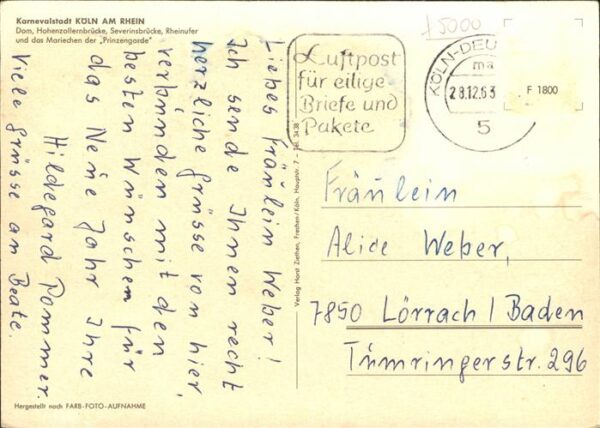 Karnevalstadt KÖLN AM RHEIN
Dom, Hohenzollernbrücke, Severinsbrücke, Rheinufer
und das Mariechen der „Prinzengarde"
Liebes Fräulein Weber!
Ich sende Ihnen recht
herzliche Grüsse von hier,
verbunden mit den
besten Wünschen für
das Neue Jahr Ihre
Hildegard Pommer.
Viele Grüsse an Beate.
Hergestellt nach FARB-FOTO-AUFNAHME
Verlag Horst Ziethen, Frechen/Köln, Hauptstr. 7 – Tel. 3438
Luftpost
für eilige
Briefe und
Pakete
KÖLN-DEU
ma
28.12.63
5
£5000
F 1800
Fräulein
Alice Weber,
7850 Lörrach / Baden
Tumringerstr. 296